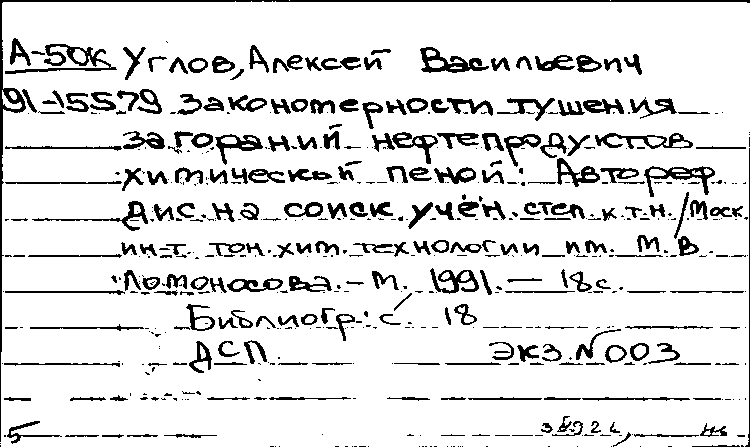 А-50к Углов, Алексей Васильевич
91-15579 Закономерности тушения
загораний нефтепродуктов
химической пеной: Автореф.
дис. на соиск. учён. степ. к.т.н. / Моск.
ин-т. тон. хим. технологии им. М.В.
Ломоносова. - М. 1991. — 18 с.
Библиогр: с. 18
ДСП. экз. N 003
5